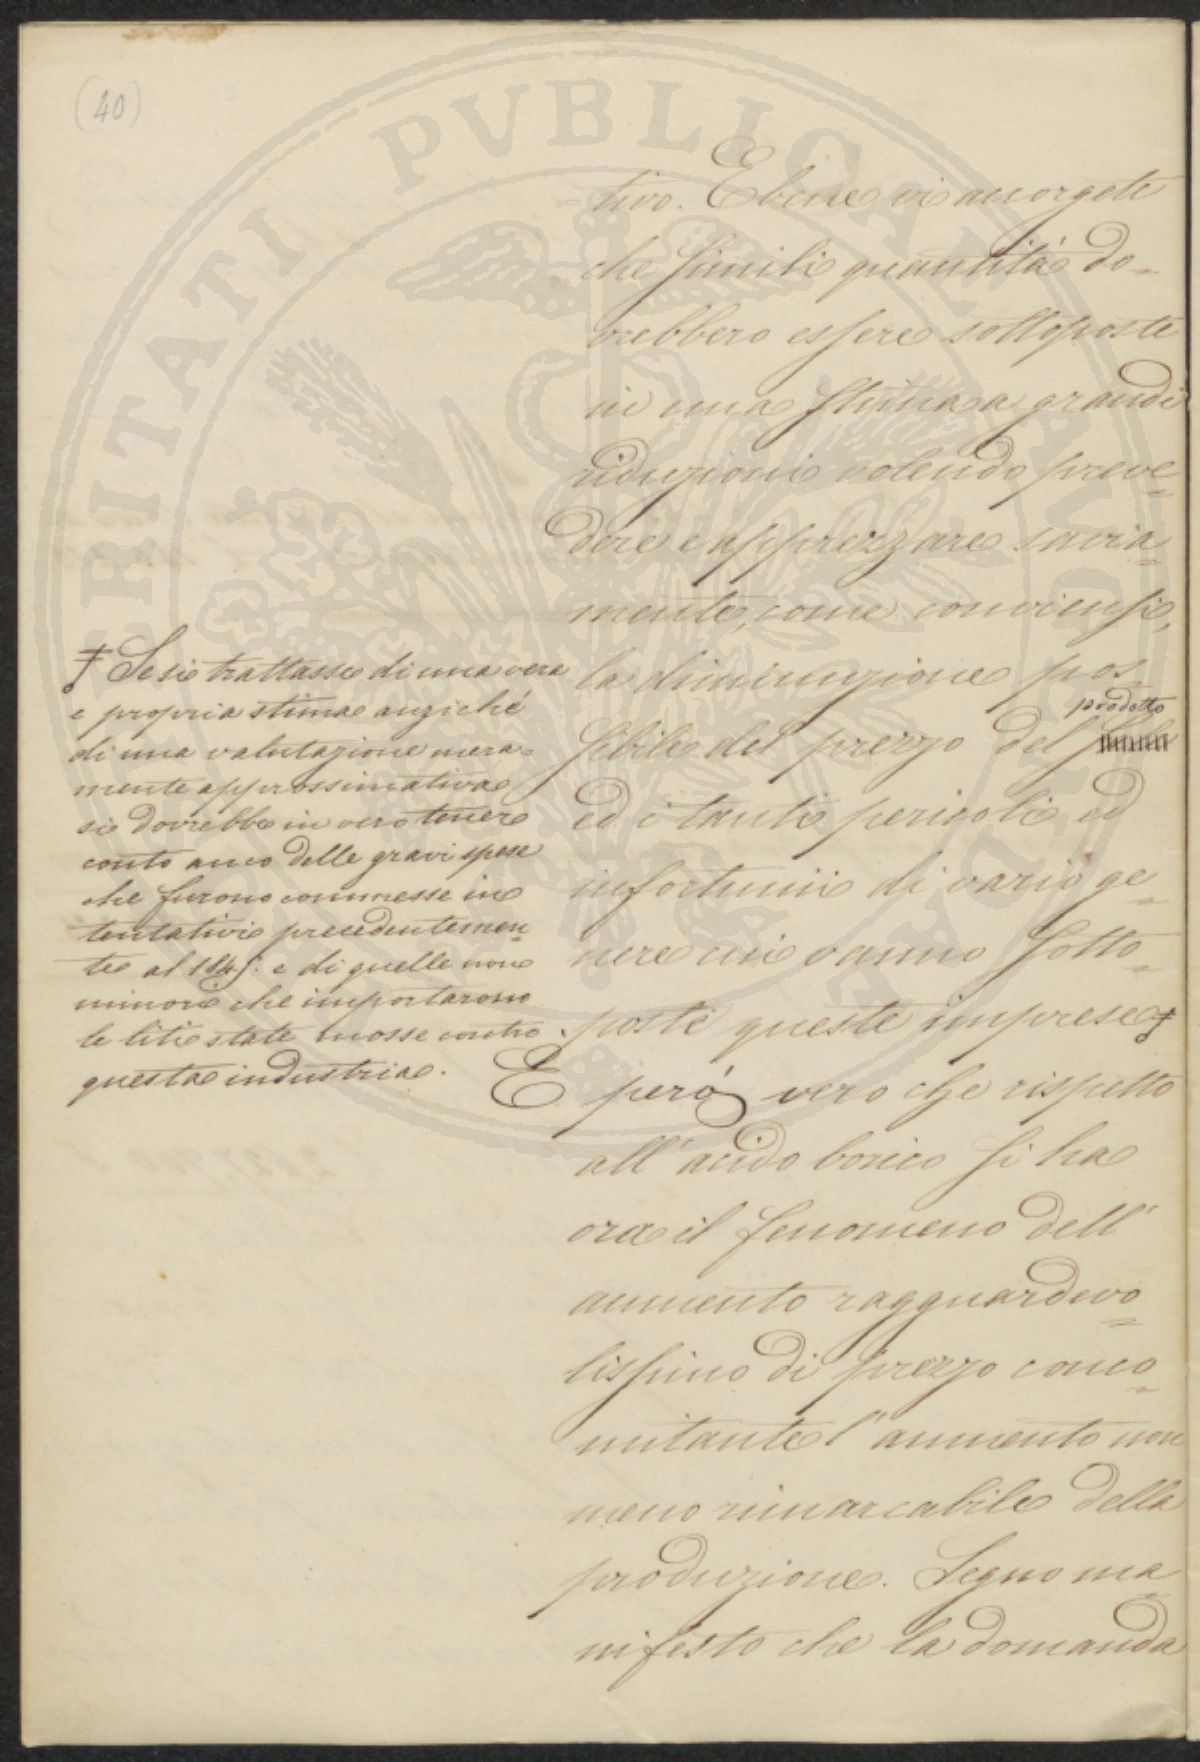 (40)
tivo. E bene vi accorgete
che simili quantità do-
vrebbero essere sottoposte
in una stima a grandi
riduzioni volendo preve-
dere e apprezzare savia-
mente, come conviensi,
la diminuzione pos-
sibile del prezzo del prodotto
ed i tanti pericoli ed
infortunii di vario ge-
nere cui vanno sotto-
poste queste imprese ‡
È però vero che rispetto
all'acido borico si ha
ora il fenomeno dell'
aumento ragguardevo-
lissimo di prezzo conco-
mitante l'aumento non
meno rimarcabile della
produzione. Segno ma-
nifesto che la domanda
‡ Se si trattasse di una vera
e propria stima anziché
di una valutazione mera-
mente approssimativa
si dovrebbe in vero tenere
conto anco delle gravi spese
che furono commesse in
tentativi precedentemen-
te al e di quelle non
minori che importarono
le liti state mosse contro
questa industria.
PVBLICAE
VTILITATI